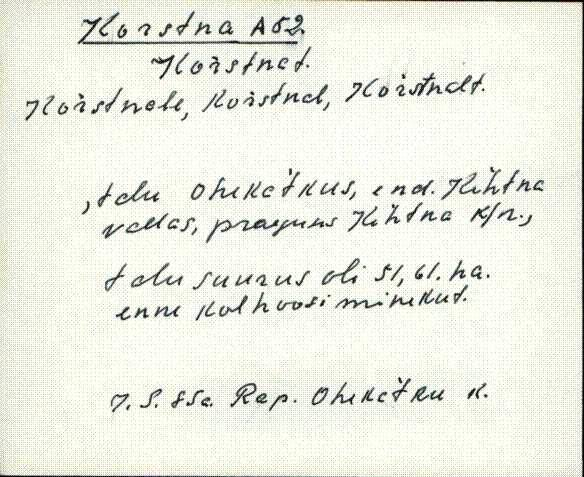 Korstna A52.
Korstnat.
Korstnale, Korstnal, Korstnalt.
, talu Ohekatkus, end. Kehtna
vallas, praegune Kehtna K/n.,
talu suurus oli 51,61. ha.
enne kolhoosi minekut.
Rap. Ohekatku K.